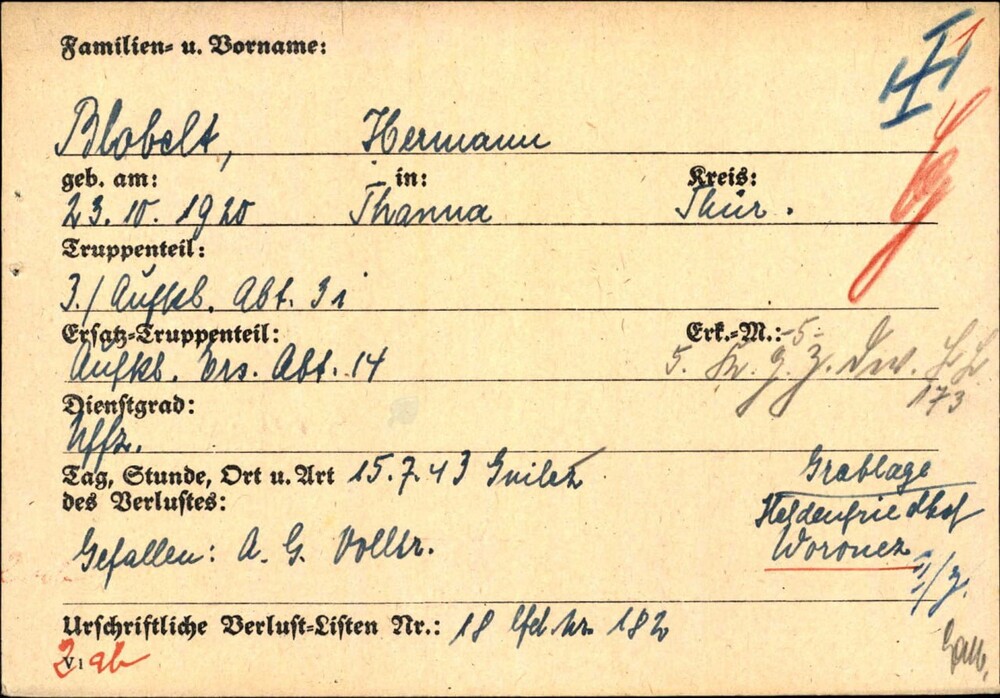 Familien- u. Vorname:
Blobelt, Hermann
geb. am: in: Kreis:
23. 10. 1920 Thanna Thür.
Truppenteil:
3./Aufkl. Abt. 31
Ersatz-Truppenteil: Erk.-M.: -5-
Aufkl. Ers. Abt. 14 5.
173
Dienstgrad:
Uffz.
Tag, Stunde, Ort u. Art 15.7.43 Gnilez
des Verlustes:
Grablage
Heldenfriedhof
Woronez
Gefallen: A. G. Volltr.
Urschriftliche Verlust-Listen Nr.: 18 lfd. Nr. 182
V1